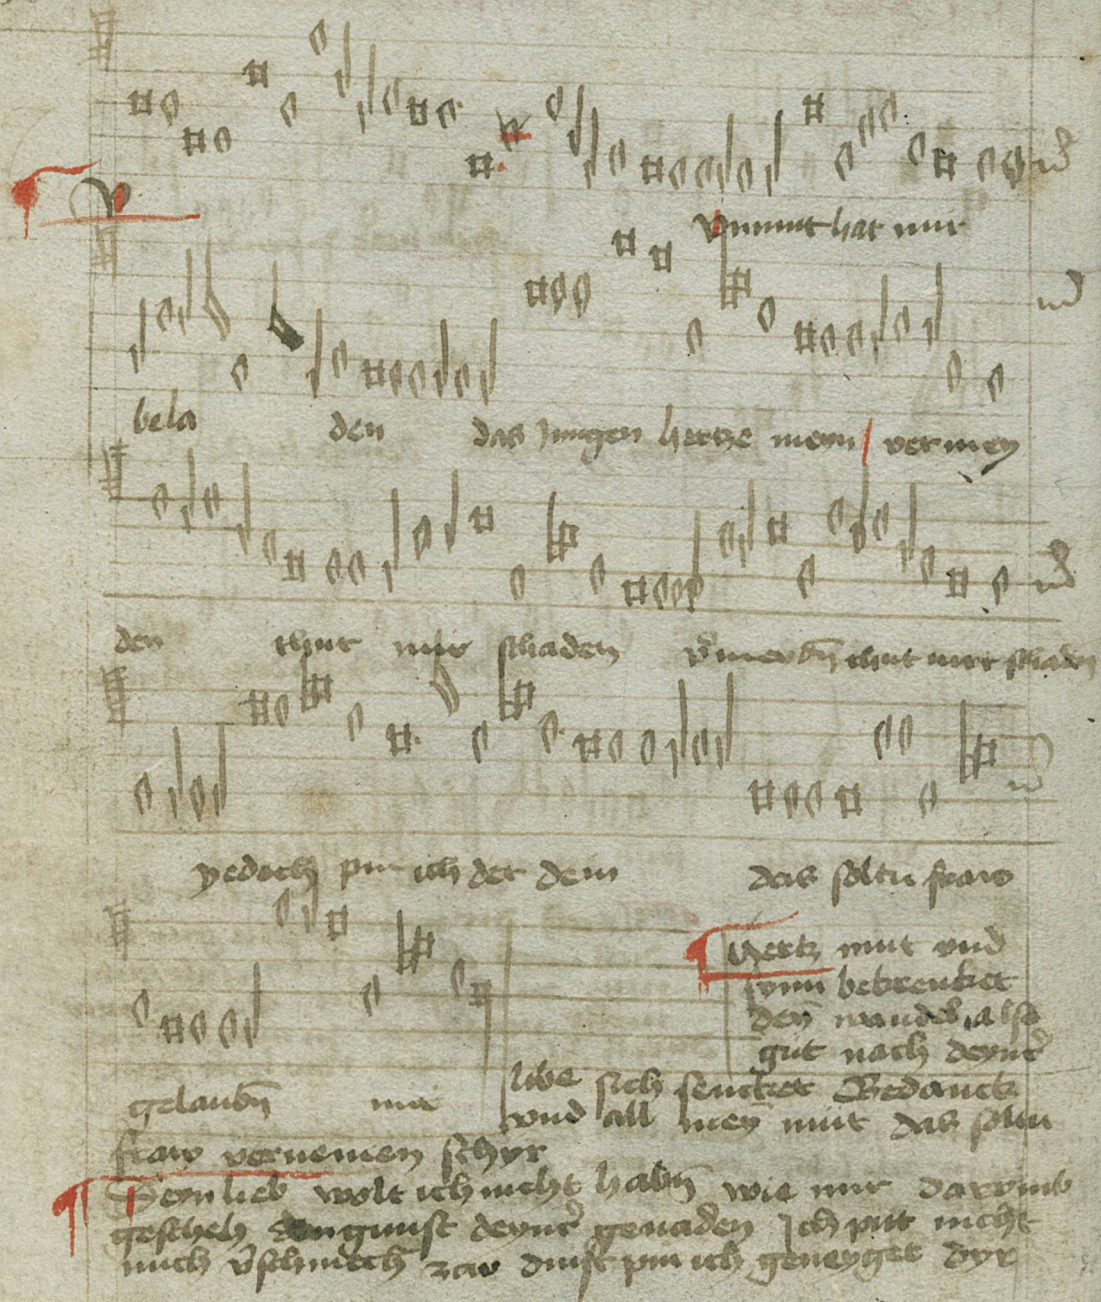 V
Vnmut hat mir
bela den das Jungen hertze meyn vermey
den thut mir schaden v̄meydn̄ thut mir schadn
yedoch pin ich der dein das soltu fraw
gelaubn̄ mir
Hertz mut vnd
synn bekrencket
gut nach deyner
libe sich sencket Gedanck
vnd all mey mut das soltu
fraw vernemen schyr
Deyn lieb wolt ich nicht habn̄ wie mir darvmb
gescheh vngunst deyner genaden Ich pit nicht
mich v̄schmech zcw dinst pin ich geneyget dyr